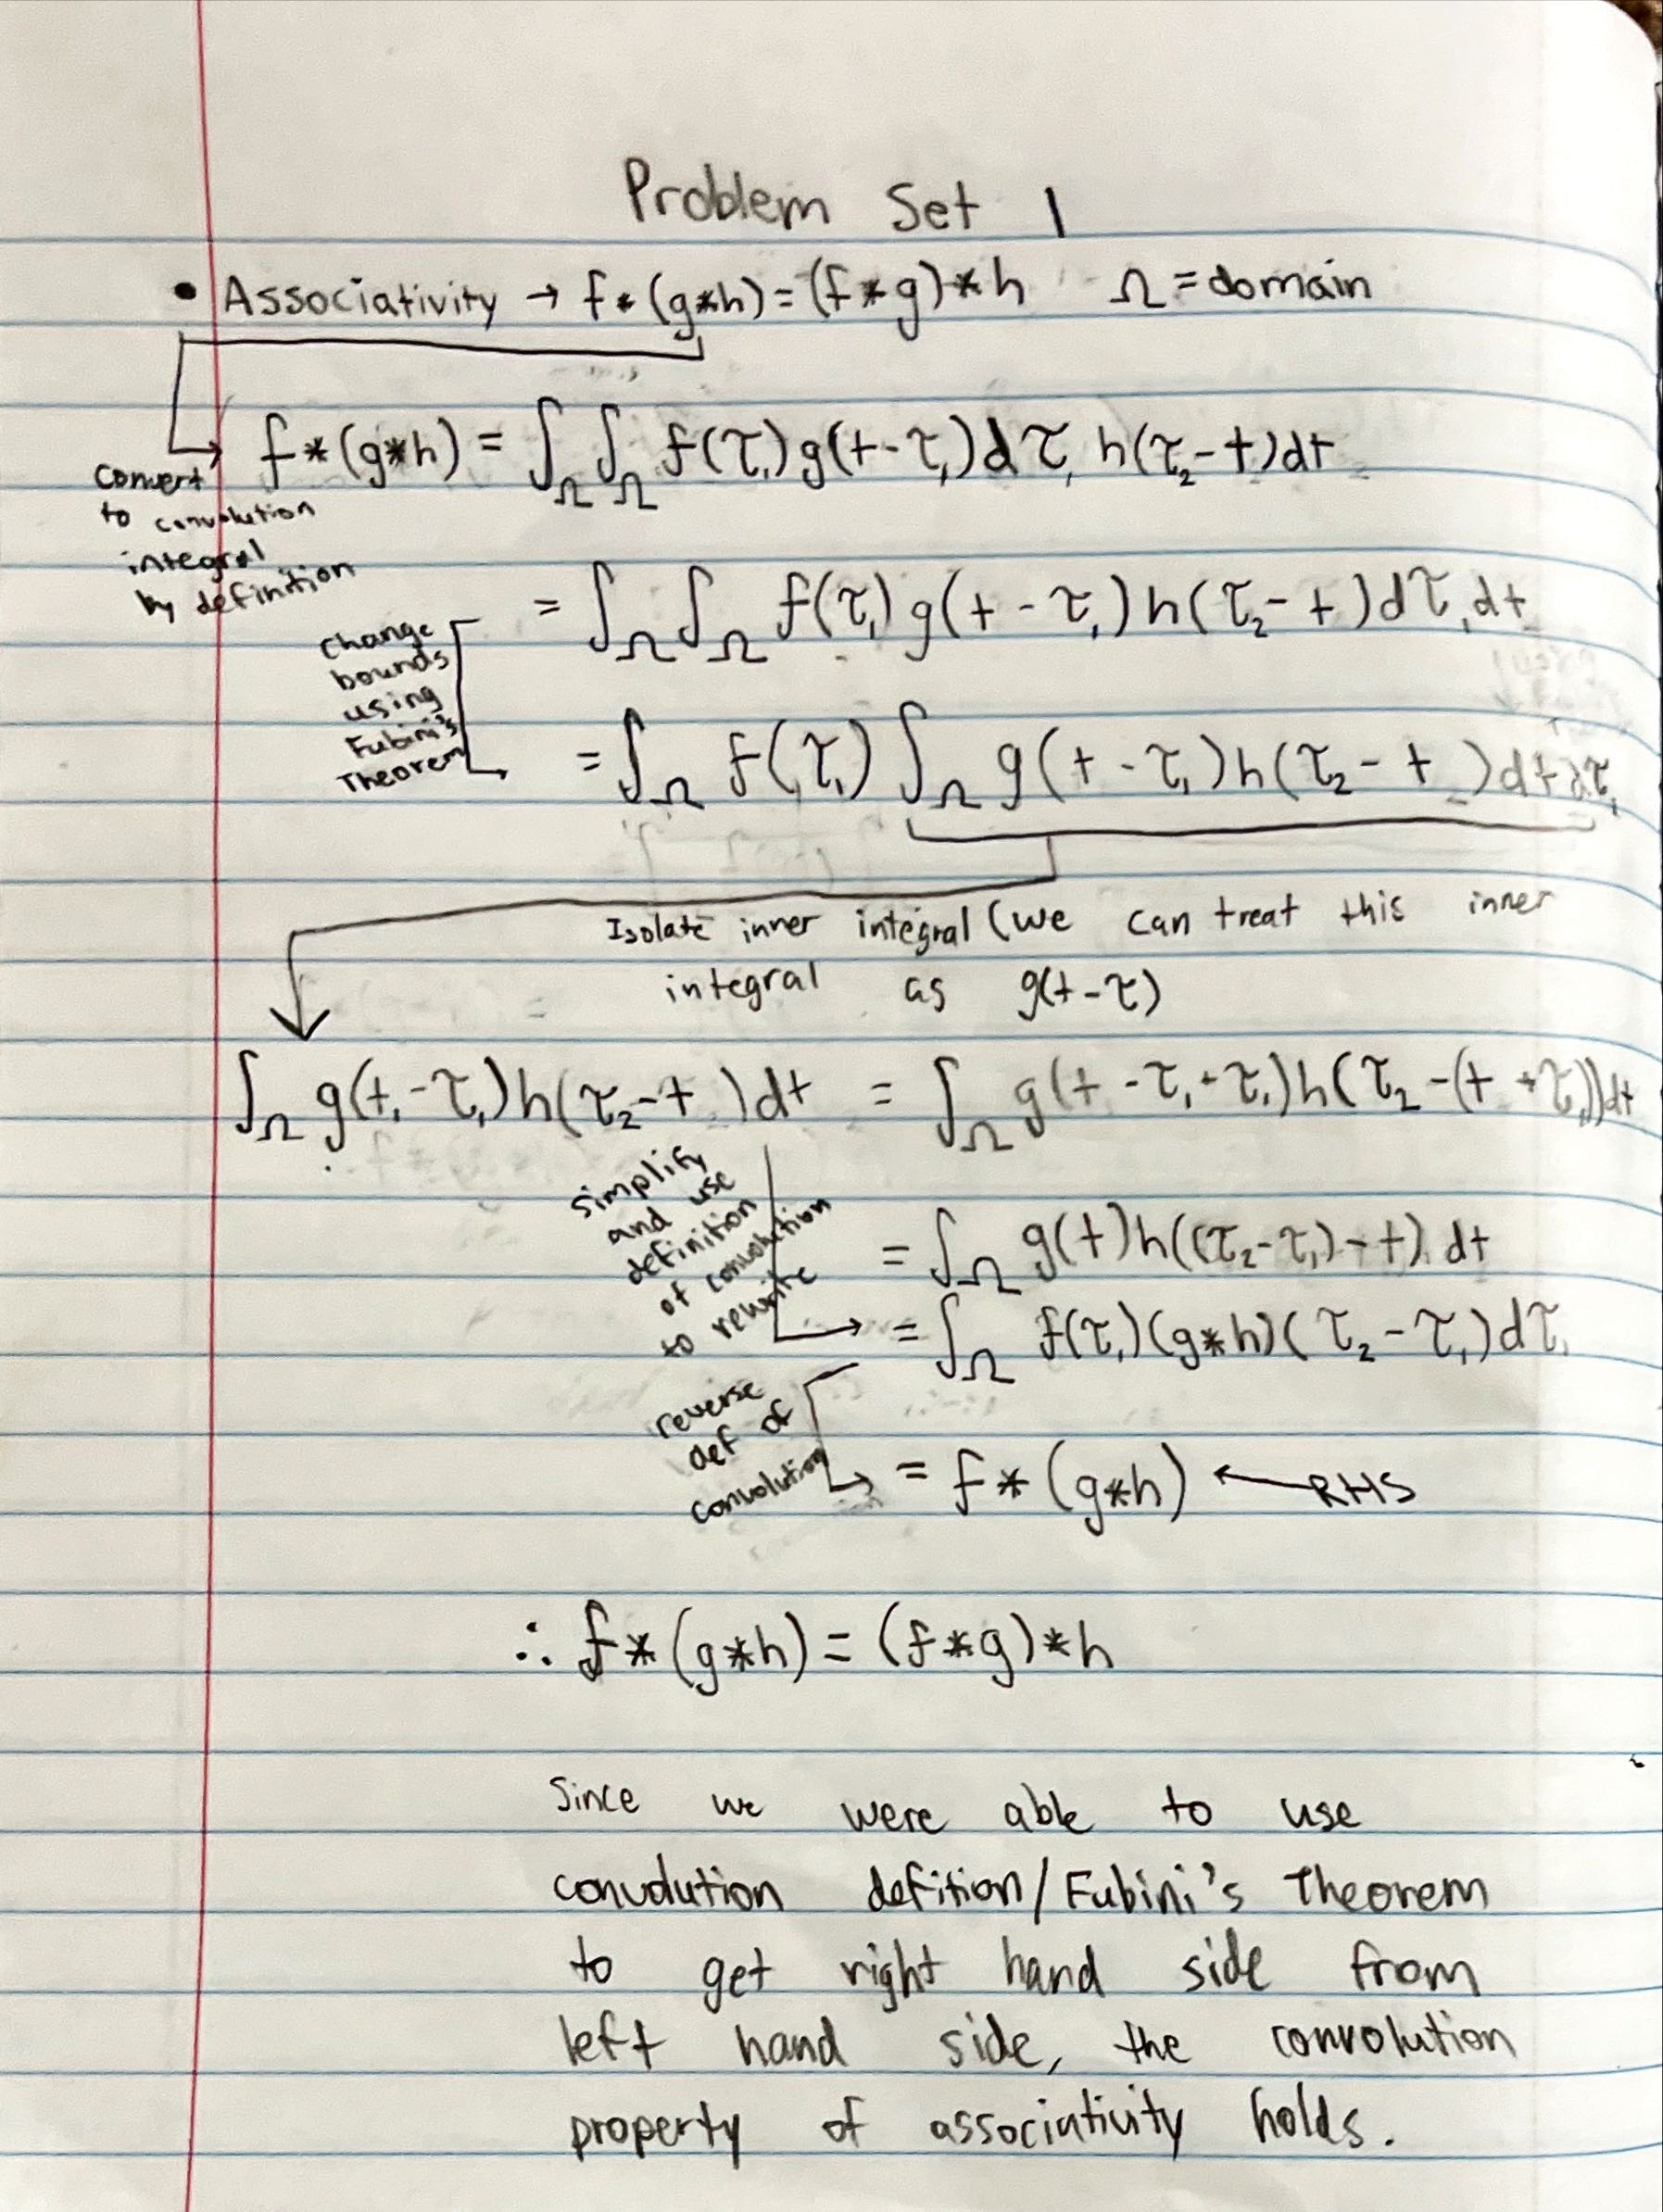 Problem Set 1
• Associativity → f * (g*h) = (f*g)*h Ω = domain
f*(g*h) = ∫_Ω ∫_Ω f(τ₁)g(t-τ₁)dτ₁ h(τ₂-t)dt
Convert
to convolution
integral
by definition
= ∫_Ω ∫_Ω f(τ₁)g(t-τ₁)h(τ₂-t)dτ₁dt
Change
bounds
using
Fubini's
Theorem
= ∫_Ω f(τ₁) ∫_Ω g(t-τ₁)h(τ₂-t)dtdτ₁
Isolate inner integral (we can treat this inner
integral as g(t-τ)
∫_Ω g(t-τ₁)h(τ₂-t)dt = ∫_Ω g(t-τ₁+τ₁)h(τ₂-(t+τ₁))dt
simplify
and use
definition
of convolution
to rewrite
= ∫_Ω g(t)h((τ₂-τ₁)-t)dt
= ∫_Ω f(τ₁)(g*h)(τ₂-τ₁)dτ₁
reverse
def of
convolution
= f*(g*h) ← RHS
∴ f*(g*h) = (f*g)*h
Since we were able to use
convolution defition/Fubini's Theorem
to get right hand side from
left hand side, the convolution
property of associativity holds.